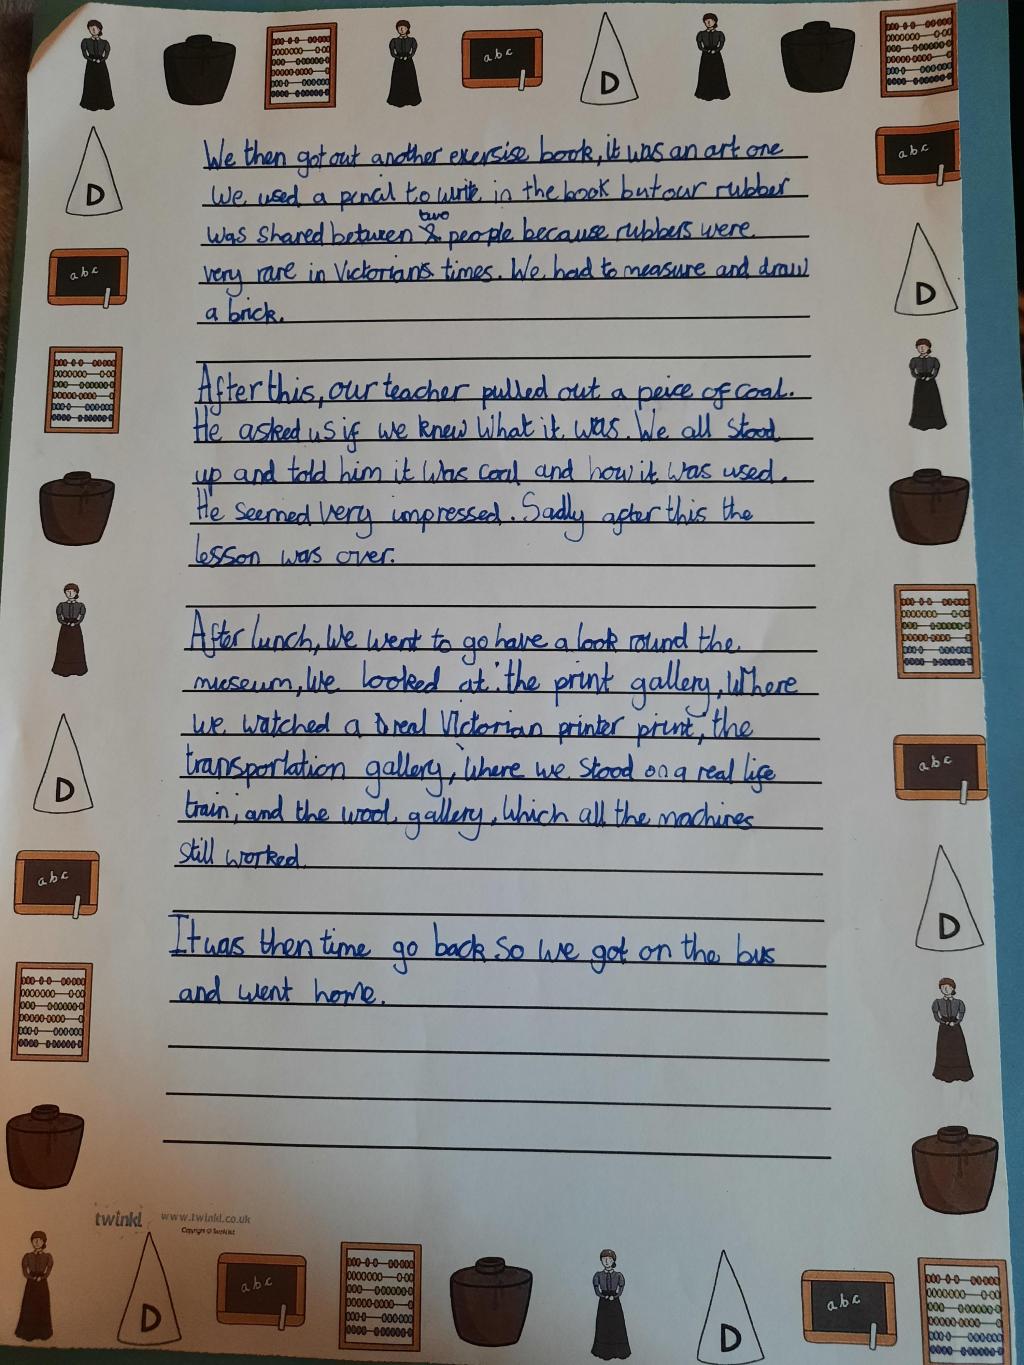 abc
D
D
abc
We then got out another exersise book, it was an art one
We used a pencil to write in the book but our rubber
two
was shared between people because rubbers were
very rare in Victorians times. We had to measure and draw
a brick.
D
abc
After this, our teacher pulled out a peice of coal.
He asked us if we knew What it was. We all stood
up and told him it was coal and how it was used.
He seemed very impressed. Sadly after this the
lesson was over.
After lunch, we went to go have a look round the
museum, we looked at: the print gallery, Where
we watched a real Victorian printer print, the
transportation gallery, Where we stood on a real life
train, and the wool gallery, Which all the machines
still worked.
D
abc
abc
D
It was then time go back so we got on the bus
and went home.
twinkl www.twinkl.co.uk
Copyright © Twinkl Ltd
D
abc
D
abc